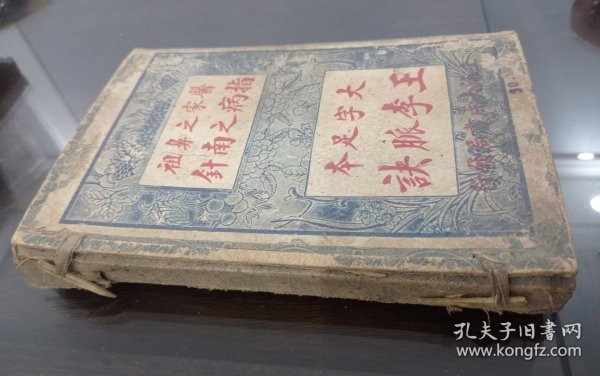 王李脈訣
大字足本
醫家之鼻祖
指病之南針
孔夫子旧书网
www.kongfz.com